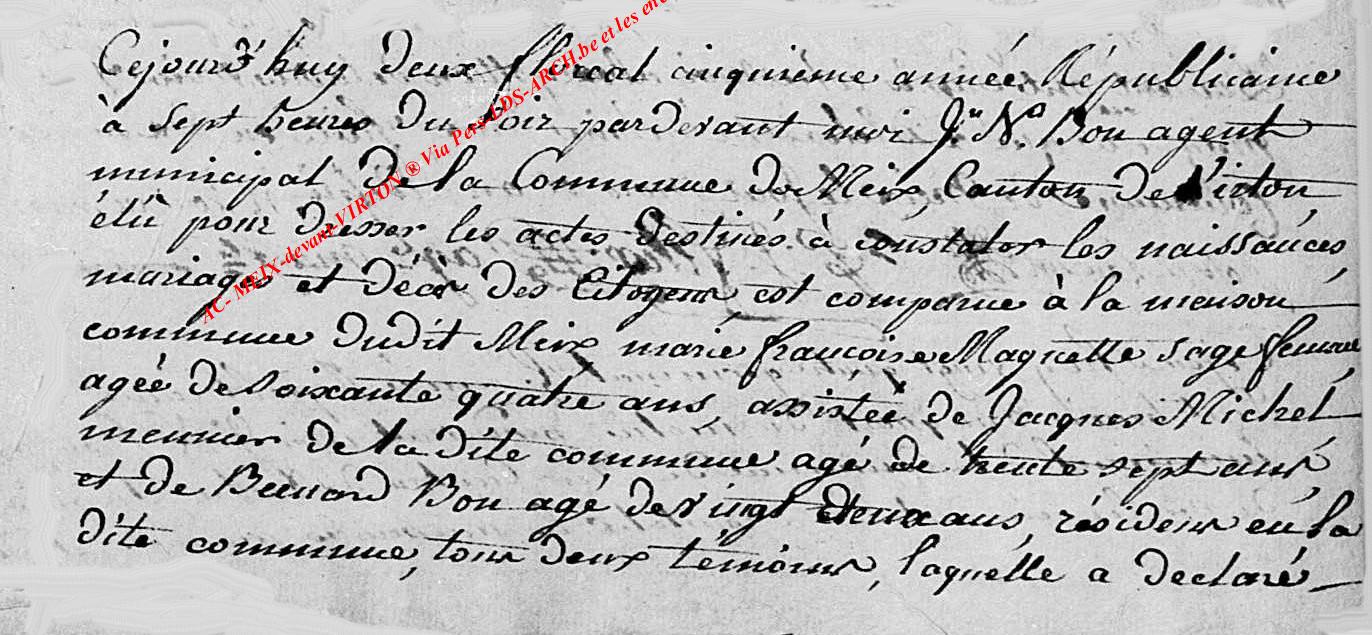 Cejourd'huy deux floréal cinquième année Républicaine
à sept heures du soir pardevant moi J.n N.s Bon agent
municipal de la Commune de Meix, Canton de Virton,
élu pour dresser les actes destinés à constater les naissances
mariages et décès des Citoyens, est comparue à la maison
commune dudit Meix marie françoise Magnette sage femme
agée de soixante quatre ans, assistée de Jacques Michel
meunier de la dite commune agé de trente sept ans,
et de Bernard Bon agé de vingt deux ans, résidens en la
dite commune, tous deux témoins, laquelle a declaré
AC- MEIX-devant-VIRTON ® Via Pers LDS-ARCH.be et les en